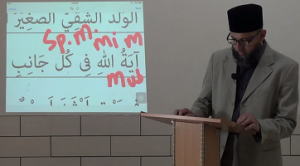 الوَلَد الشَّقِيّ الصَّغِيرَ
Sp. m. mi m
آيَةُ اللهِ فِي كُلِّ جَانِبٍ
mud